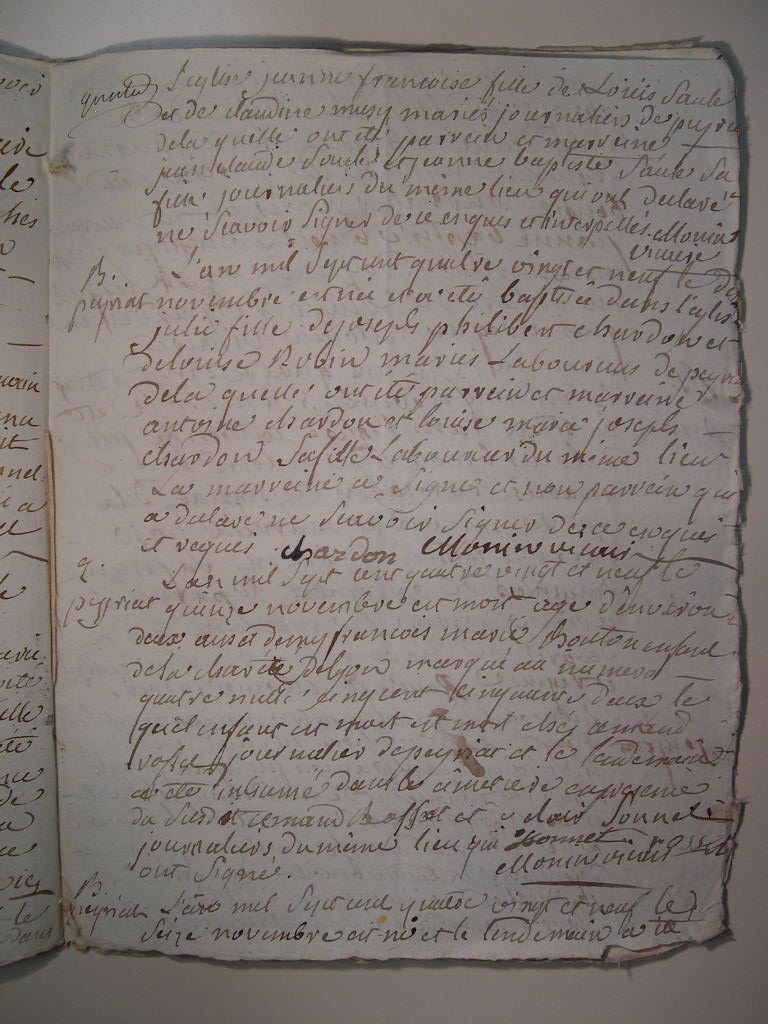 L'eglise jeanne francoise fille de Louis Saule
et de claudine musy mariés journaliers de peyria
dela quelle ont été parrein et marreine
jean claude Saule et jeanne baptiste Saule Sa
fille journaliers du même lieu qui ont declaré
ne Scavoir Signer de ce enquis et interpellés. Monin
vicaire
B.
peyriat
L'an mil Sept cent quatre vingt et neuf le
novembre est née et a été baptisée dans l'eglise
julie fille de joseph philibert chardon et
de louise Robin mariés Laboureurs de peyriat
dela quelle ont été parrein et marreine
antoine chardon et louise marie joseph
chardon Sa fille Laboureur du même lieu
La marreine a Signé et non parrein qui
a declaré ne Scavoir Signer de ce
et requis chardon Monin vicaire
peyriat
L'an mil Sept cent quatre vingt et neuf le
quinze novembre est mort age d'environ
deux ans et demy francois marie Bouton enfant
dela charité de lyon marqué au numero
quatre mille cinq cent cinquante deux le
quel enfant est mort chés armand
journalier de peyriat et le lendemain
a été inhumé dans le cimetiere en presence
du Susdit armand et de clair Sonnet
journaliers du même lieu qui Sonnet
ont Signé. Monin vicaire
B.
peyriat
L'an mil Sept cent quatre vingt et neuf le
Seize novembre est né et le lendemain a été